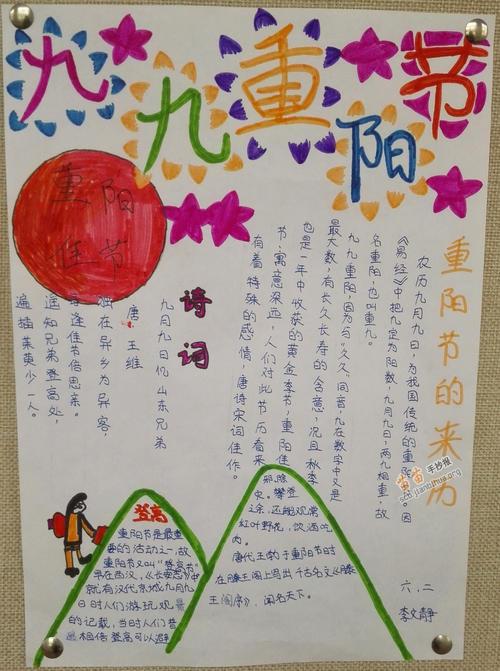 九九重阳节
重阳
佳节
重阳节的来历
农历九月九日，为我国传统的重阳 因
《易经》中把九定为阳数，九月九日，两九相重，故
名重阳，也叫重九。
九九重阳，因为与“久久”同音，九在数字中又是
最大数，有长久长寿的含意，况且秋季
也是一年中收获的黄金季节，重阳佳
节，寓意深远，人们对此节历看来
有着特殊的感情，唐诗宋词佳作。
诗词
九月九日忆山东兄弟
唐 王维
独在异乡为异客，
每逢佳节倍思亲。
遥知兄弟登高处，
遍插茱萸少一人。
登高
重阳节是最重
要的活动之一，故
重阳节又叫“登高节”
早在西汉，《长安志》中
就有汉代京城九月九
日时人们游玩观景
的记载，当时人们普
相信登高可以避
邪除
灾。攀登
之余，还能观赏
红叶野花，饮酒吃
肉。
唐代王勃于重阳节时
在滕王阁上写出千古名文《滕
王阁序》，闻名天下。
六、二
李文静
手抄报